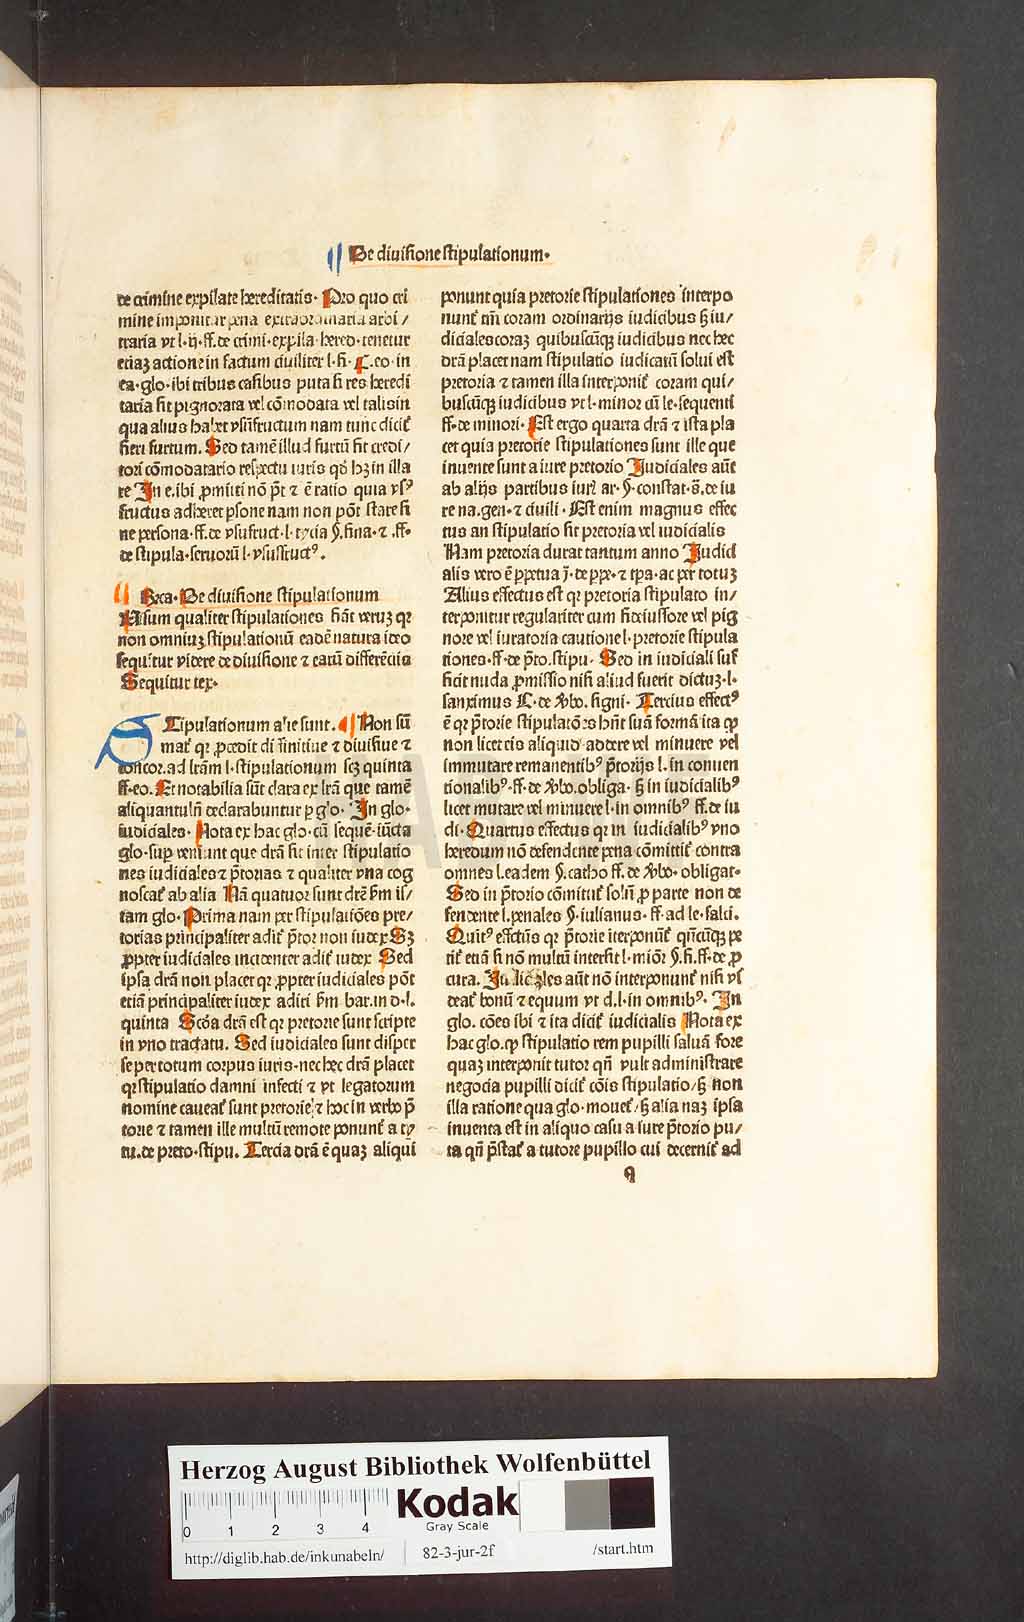 De diuisione stipulationum.
de crimine expilate hereditatis. Pro quo cri
mine imponitur pena extraordinaria arbi/
traria vt l. ij. ff. de crimi. expila. hered. tenetur
etiaꝫ actione in factum ciuiliter l. fi. C. eo. in
ea. glo. ibi tribus casibus puta si res heredi
taria sit pignorata vel cōmodata vel talis in
qua alius habet vsūfructum nam tunc dicit᷑
fieri furtum. Sed tamē illud furtū fit credi/
tori cōmodatario respectu iuris qd̄ hꝫ in illa
re In e. ibi ꝓmitti nō pōt ⁊ ē ratio quia vsꝰ
fructus adheret ꝑsone nam non pōt stare si
ne persona. ff. de vsufruct. l. tycia §. fina. ⁊ .ff.
de stipula. seruorū l. vsusfructꝰ.
Rica. De diuisione stipulationum
Uisum qualiter stipulationes fiāt veruꝫ qꝛ
non omniuꝫ stipulationū eadē natura ideo
sequitur videre de diuisione ⁊ earū differētiis
Sequitur tex.
STipulationum alie sunt. Non sū
mat᷑ qꝛ ꝓcedit diffinitiue ⁊ diuisiue ⁊
concor. ad lr̄am l. stipulationum scꝫ quinta
ff. eo. Et notabilia sūt clara ex lr̄a que tamē
aliquantulū declarabuntur ꝑ glo. In glo.
iudiciales. Nota ex hac glo. cū sequē. iūcta
glo. suꝑ veniunt que dr̄am fit inter stipulatio
nes iudiciales ⁊ p̄torias ⁊ qualiter vna cog
noscat᷑ ab alia Nā quatuor sunt dr̄e ẜm is/
tam glo. Prima nam per stipulatiōes pre/
torias principaliter adit᷑ p̄tor non iudex Sꝫ
ꝓpter iudiciales incidenter adit᷑ iudex Sed
ipsa dr̄am non placet qꝛ ꝓpter iudiciales pōt
etiā principaliter iudex adiri ẜm bar. in d. l.
quinta Scōa dr̄am est qꝛ pretorie sunt scripte
in vno tractatu. Sed iudiciales sunt disper
se per totum corpus iuris. nec hec dr̄am placet
qꝛ stipulatio damni infecti ⁊ vt legatorum
nomine caueat᷑ sunt pretorie ⁊ hoc in verbo p̄
torie ⁊ tamen ille multū remote ponunt᷑ a ty
tu. de preto. stipu. Tercia dr̄am ē quaꝫ aliqui
ponunt quia pretorie stipulationes interpo
nunt᷑ tm̄ coram ordinarijs iudicibus ꝫ iu/
diciales coraꝫ quibuscūqꝫ iudicibus nec hec
dr̄am placet nam stipulatio iudicatū solui est
pretoria ⁊ tamen illa interponit᷑ coram qui/
buscūqꝫ iudicibus vt l. minor cū le. sequenti
ff. de minori. Est ergo quarta dr̄am ⁊ ista pla
cet quia pretorie stipulationes sunt ille que
inuente sunt a iure pretorio Judiciales aūt
ab alijs partibus iuris ar. §. constat. s̄. de iu
re na. gen. ⁊ ciuili. Est enim magnus effec
tus an stipulatio sit pretoria vel iudicialis
Nam pretoria durat tantum anno Judici
alis vero ē ꝑpetua j. de ꝑpe. ⁊ tꝑa. ac per totuꝫ
Alius effectus est qꝛ pretoria stipulato in/
terponitur regulariter cum fideiussore vel pig
nore vel iuratoria cautione l. pretorie stipula
tiones. ff. de p̄to. stipu. Sed in iudiciali suf
ficit nuda ꝓmissio nisi aliud fuerit dictuꝫ. l.
sanximus C. de v̄bo. signi. Tercius effectꝰ
ē qꝛ p̄torie stipulatōes hn̄t suā formā ita ꝙ
non licet eis aliquid addere vel minuere vel
immutare remanentibꝰ p̄torijs l. in conuen
tionalibꝰ. ff. de v̄bo. obliga. ꝫ in iudicialibꝰ
licet mutare vel minuere l. in omnibꝰ ff. de iu
di. Quartus effectus qꝛ in iudicialibꝰ vno
heredum nō defendente pena cōmittit᷑ contra
omnes l. eadem §. catho ff. de v̄bo. obligat.
Sed in p̄torio cōmitit᷑ solū ꝓ parte non de
fendente l. penales §. iulianus. ff. ad le. falci.
Quitꝰ effectꝰ qꝛ p̄torie iterponūt᷑ qn̄cūqꝫ pe
tit᷑ etiā si nō multū intersit l. miōr §. fi. ff. de ꝓ
cura. Judiciales aūt nō interponunt᷑ nisi vi
deat᷑ bonū ⁊ equum vt d. l. in omnibꝰ. In
glo. cōes ibi ⁊ ita dicit᷑ iudicialis Nota ex
hac glo. ꝙ stipulatio rem pupilli saluā fore
quaꝫ interponit tutor qn̄ vult administrare
negocia pupilli dicit᷑ cōis stipulatio/ ꝫ non
illa ratione qua glo. mouet᷑/ ꝫ alia naꝫ ipsa
inuenta est in aliquo casu a iure p̄torio pu/
ta qn̄ p̄stat᷑ a tutore pupillo cui decernit᷑ ad
q
Herzog August Bibliothek Wolfenbüttel
0 1 2 3 4
Kodak
Gray Scale
http://diglib.hab.de/inkunabeln/ 82-3-jur-2f /start.htm